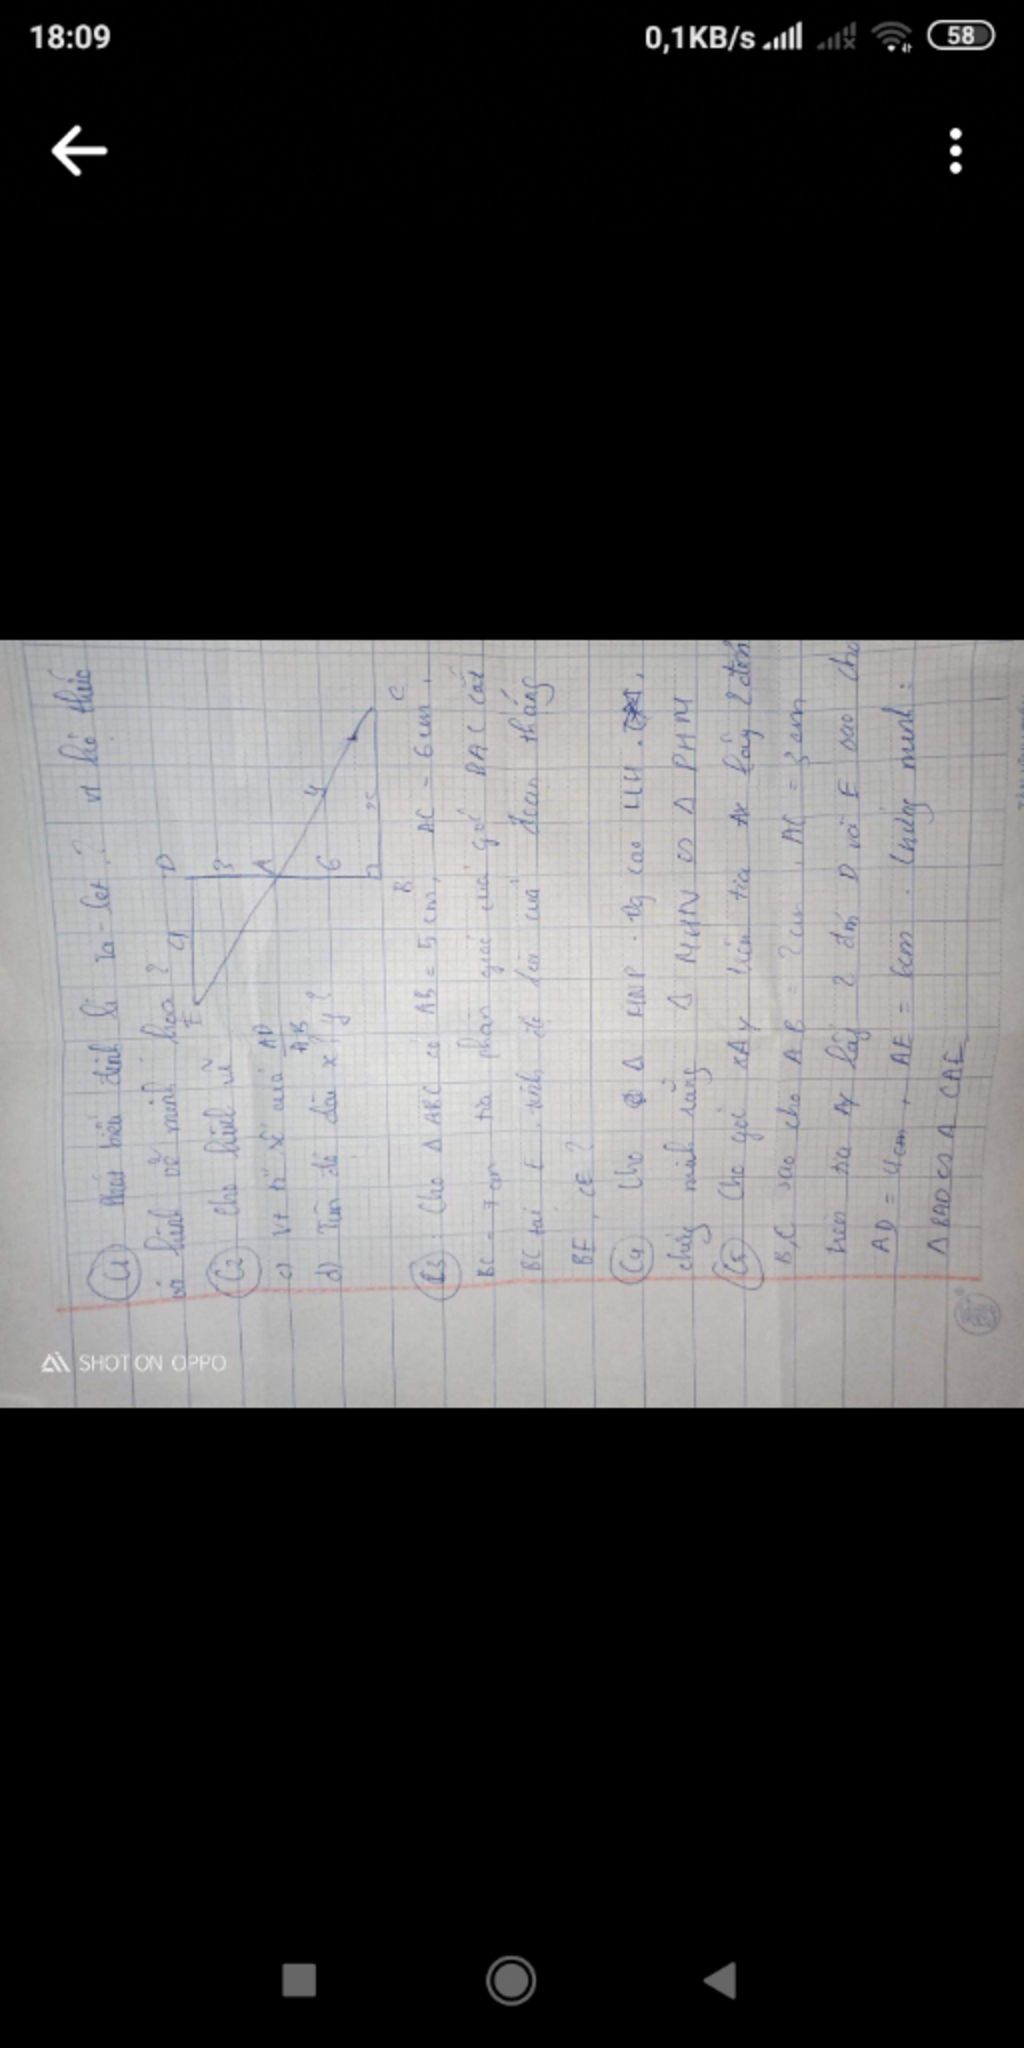 18:09
0,1KB/s
58
C1 Phát biểu định lí Ta-let? vt hệ thức
và hình vẽ minh hoạ?
C2 Cho hình vẽ
c) Vt tỉ số của AD/AB
d) Tìm độ dài x, y?
E 4 D
3
A
6 y
B x C
C3: Cho Δ ABC có AB = 5cm, AC = 6cm,
BC = 7cm tia phân giác của góc BAC cắt
BC tại E. tính độ dài của đoạn thẳng
BE, CE?
C4 Cho Δ MNP. Đg cao MH.
chứng minh rằng Δ MHN ∽ Δ PHM
C5 Cho góc xAy trên tia Ax lấy 2 điểm
B, C sao cho AB = 2cm, AC = 3cm
trên tia Ay lấy 2 đm D và E sao cho
AD = 4cm, AE = 6cm. Chứng minh:
Δ BAD ∽ Δ CAE
SHOT ON OPPO